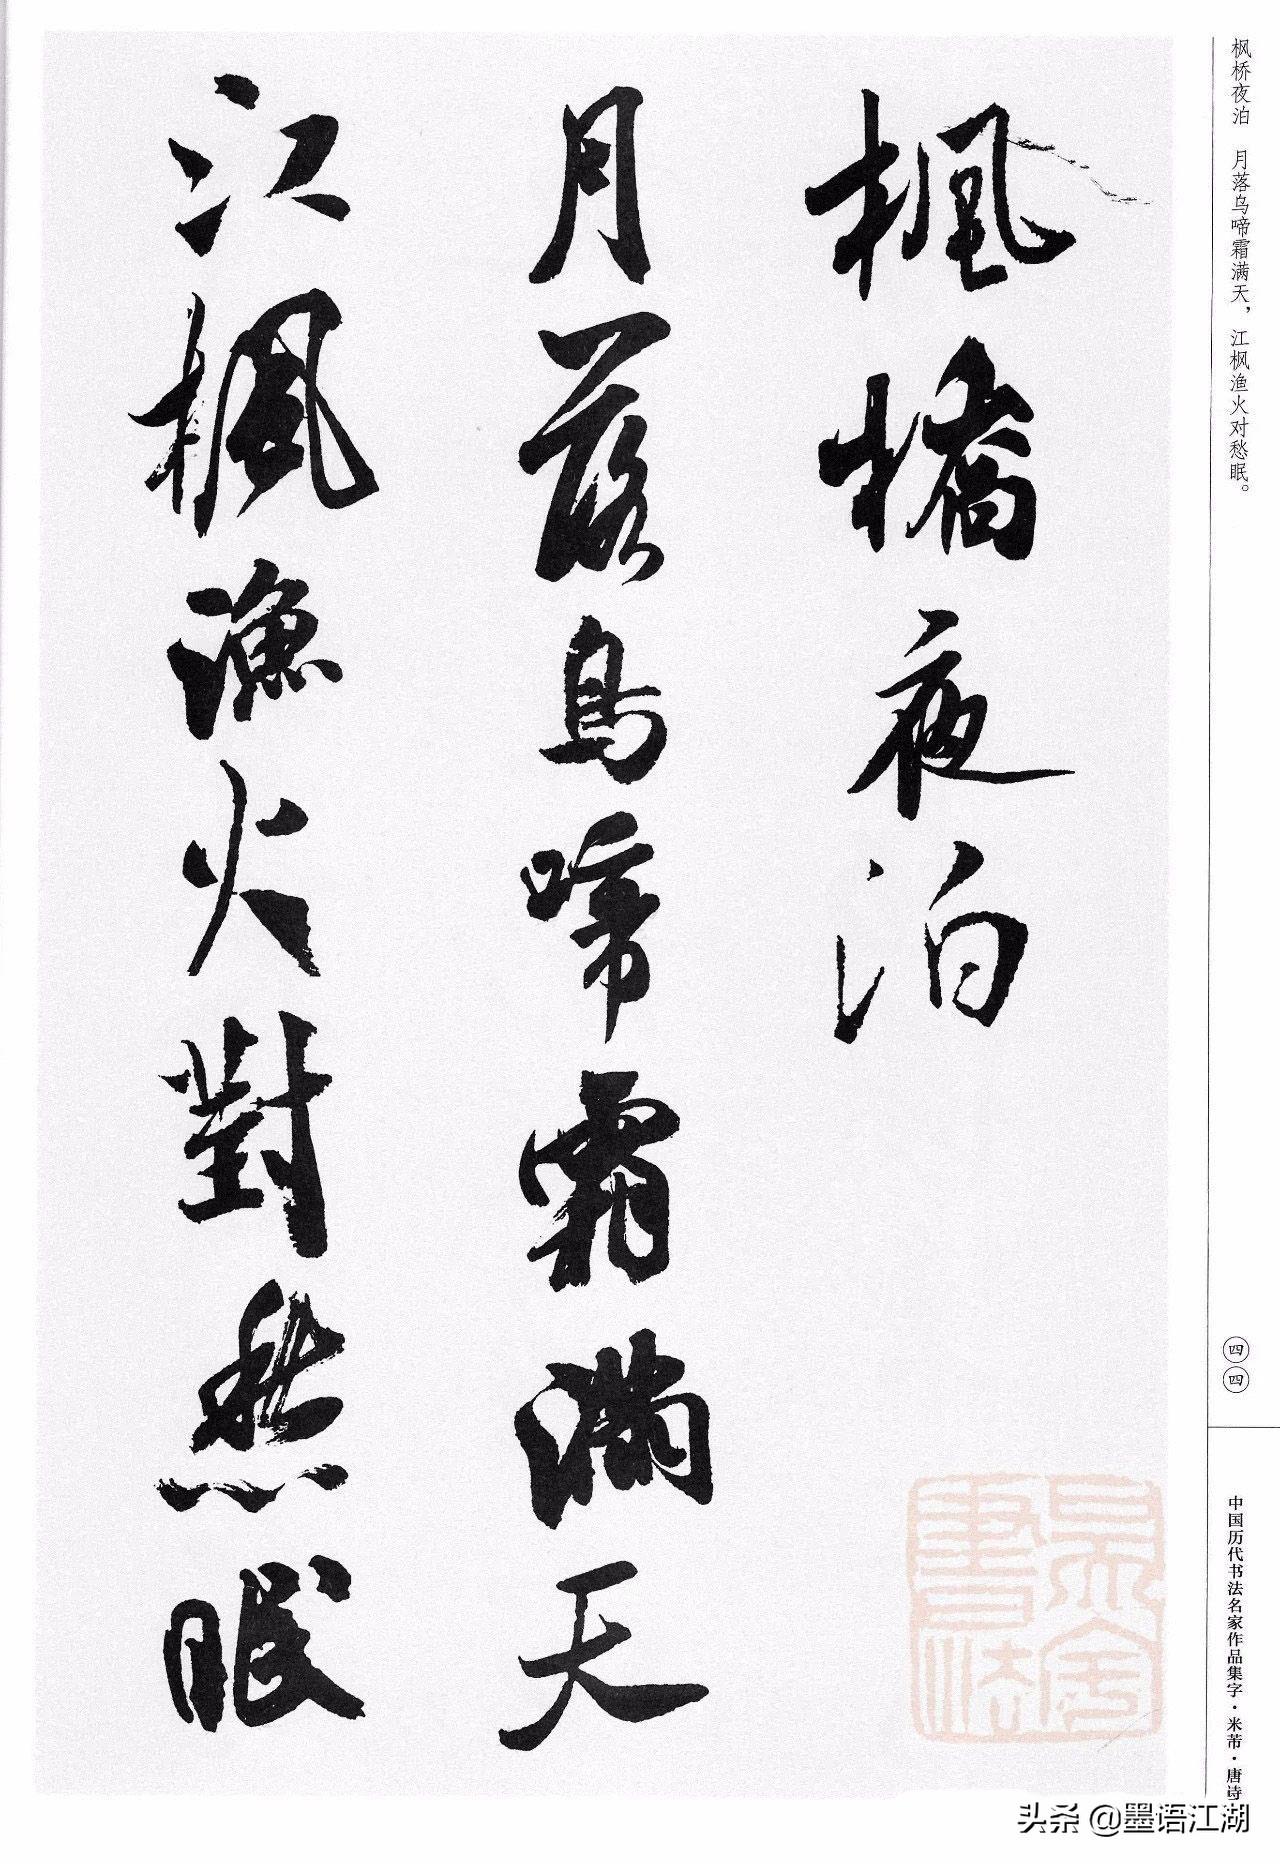 枫桥夜泊　月落乌啼霜满天，江枫渔火对愁眠。
楓橋夜泊
月落烏啼霜滿天
江楓漁火對愁眠
四四
中国历代书法名家作品集字·米芾·唐诗
头条 @墨语江湖